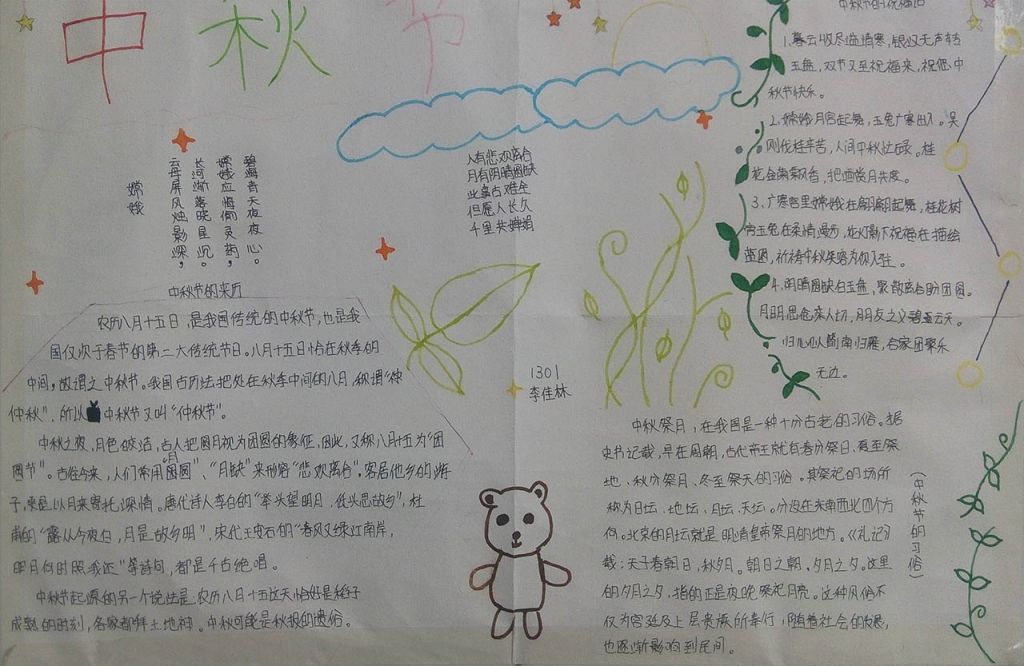 中秋节
中秋节的祝福语
1.暮云收尽溢清寒,银汉无声转
玉盘,双节又至祝福来,祝您中
秋节快乐。
2.嫦娥月宫起舞,玉兔广寒出入。吴
刚伐桂辛苦,人间中秋忙碌。桂
花会集飘香,把酒赏月共度。
3.广寒宫里嫦娥在翩翩起舞,桂花树
旁玉兔在柔情漫步,花灯影下祝福在描绘
蓝图,祈祷中秋笑容为你入驻。
4.阴晴圆缺白玉盘,聚散离合盼团圆。
月明思念亲人切,朋友之义碧云天。
归心似箭南归雁,合家团聚乐
无边。
嫦娥
云母屏风烛影深,
长河渐落晓星沉。
嫦娥应悔偷灵药,
碧海青天夜夜心。
人有悲欢离合
月有阴晴圆缺
此事古难全
但愿人长久
千里共婵娟
中秋节的来历
农历八月十五日,是我国传统的中秋节,也是我
国仅次于春节的第二大传统节日。八月十五日恰在秋季的
中间,故谓之中秋节。我国古历法把处在秋季中间的八月,称谓“
仲秋”,所以中秋节又叫“仲秋节”。
中秋之夜,月色皎洁,古人把圆月视为团圆的象征,因此,又称八月十五为“团
圆节”。古往今来,人们常用“月圆”、“月缺”来形容“悲欢离合”,客居他乡的游
子,更是以月来寄托深情。唐代诗人李白的“举头望明月,低头思故乡”,杜
甫的“露从今夜白,月是故乡明”,宋代王安石的“春风又绿江南岸,
明月何时照我还”等诗句,都是千古绝唱。
中秋节起源的另一个说法是:农历八月十五这天恰好是稻子
成熟的时刻,各家都拜土地神。中秋可能是秋报的遗俗。
1301
李佳林
中秋祭月,在我国是一种十分古老的习俗。据
史书记载,早在周朝,古代帝王就有春分祭日、夏至祭
地、秋分祭月、冬至祭天的习俗。其祭祀的场所
称为日坛、地坛、月坛、天坛。分设在东南西北四个方
向。北京的月坛就是明清皇帝祭月的地方。《礼记》
载:天子春朝日,秋夕月。朝日之朝,夕月之夕。这里
的夕月之夕,指的正是夜晚祭祀月亮。这种风俗不
仅为宫廷及上层贵族所奉行,随着社会的发展,
也逐渐影响到民间。
(中秋节的习俗)